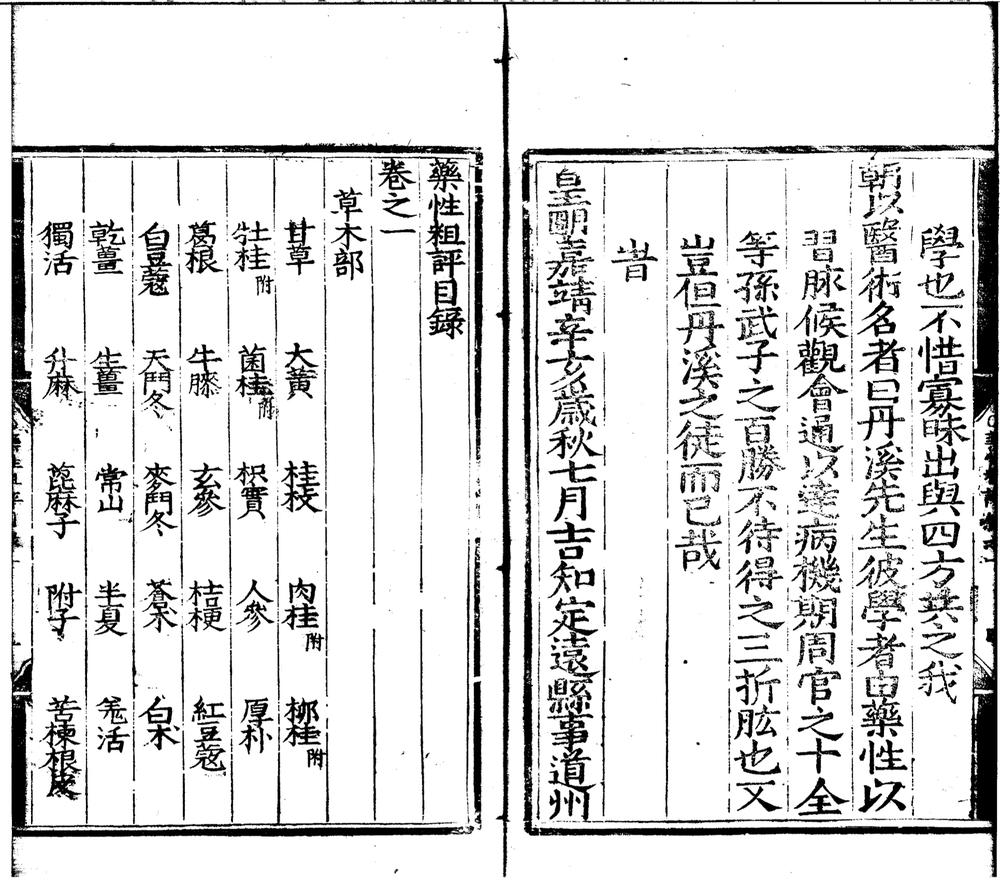 學也不惜寡昧出與四方共之我
朝以醫術名者曰丹溪先生彼學者由藥性以
習脉候觀會通以達病機期周官之十全
等孫武子之百勝不待得之三折肱也又
豈但丹溪之徒而已哉
旹
皇明嘉靖辛亥歲秋七月吉知定遠縣事道州
藥性粗評目錄
卷之一
草木部
甘草 大黃 桂枝 肉桂附 柳桂附
牡桂附 菌桂附 枳實 人參 厚朴
葛根 牛膝 玄參 桔梗 紅豆蔻
白豆蔻 天門冬 麥門冬 蒼朮 白朮
乾薑 生薑 常山 半夏 羗活
獨活 升麻 萞麻子 附子 苦楝根皮